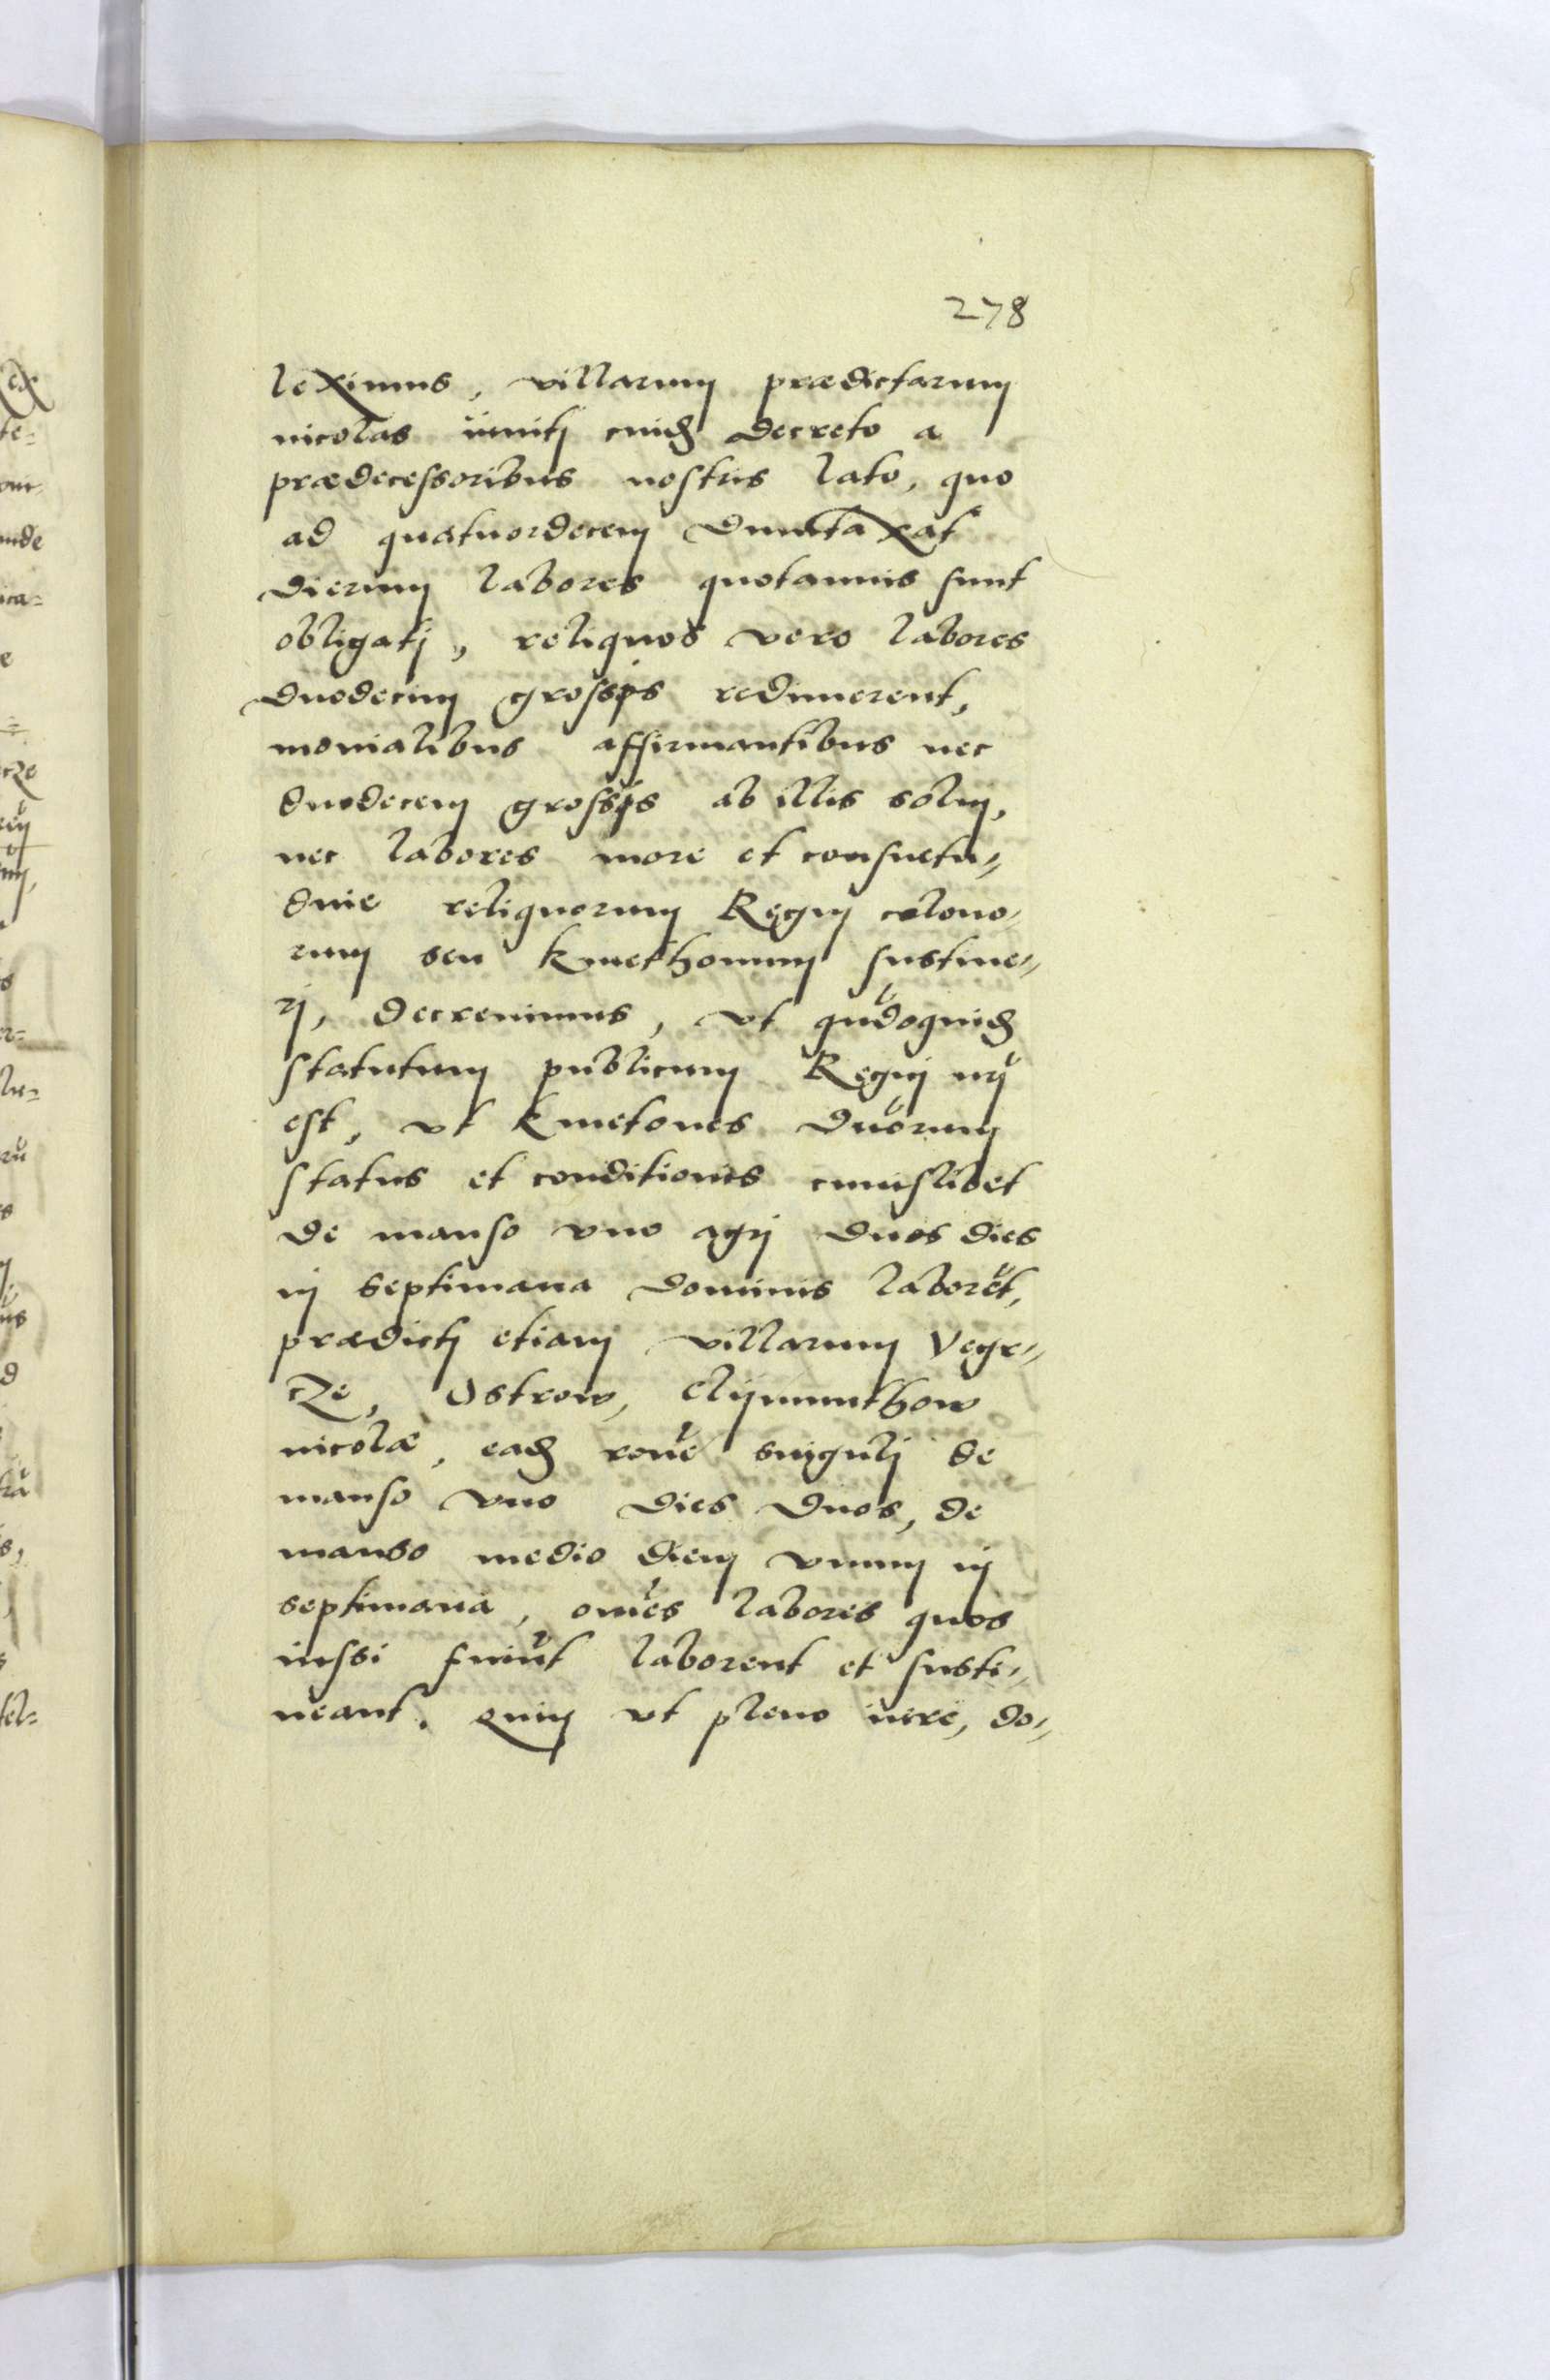 278
leximus, villarum prædictarum
incolas inniti cuid decreto a
prædecessoribus nostris lato, quo
ad quatuordecem duntaxat
dierum labores quotannis sunt
obligati, reliquos vero labores
duodecim grossis redimerent,
monialibus affirmantibus nec
duodecem grossis ab illis solui,
nec labores more et consuetu-
dine reliquorum Regni colono-
rum seu kmethonum sustine-
ri, decreuimus, vt quãdoquid
statutum publicum Regni nri
est, vt kmetones duorum
status et conditionis cuiuslibet
de manso vno agri duos dies
in septimana dominis laborẽt,
prædicti etiam villarum Vegr-
cze, Ostrow, Clymunthow
incolæ, ead rone singuli de
manso vno dies duos, de
manso medio diem vnum in
septimana, omẽs labores quos
iussi fuiũt laborent et susti-
neant. quin vt pleno iure, do-